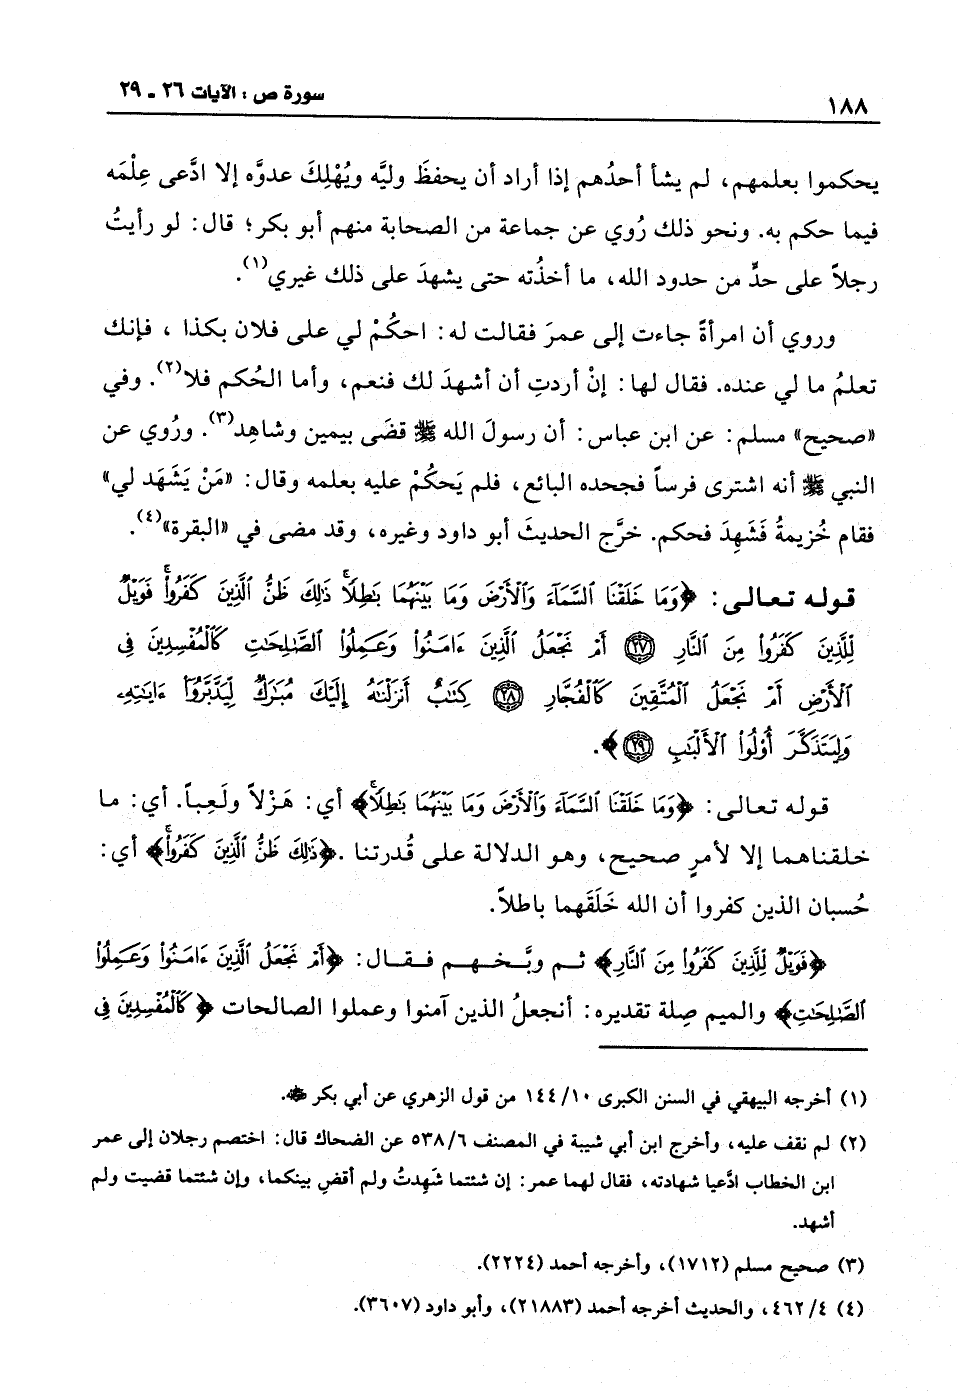 ١٨٨ سورة ص : الآيات ٢٦ - ٢٩
يحكموا بعلمهم، لم يشأ أحدُهم إذا أراد أن يحفظَ وليَّه ويُهْلِكَ عدوَّه إلا ادَّعى عِلْمَه
فيما حكم به. ونحو ذلك رُوي عن جماعة من الصحابة منهم أبو بكر؛ قال: لو رأيتُ
رجلاً على حدٍّ من حدود الله، ما أخذْته حتى يشهدَ على ذلك غيري(١).
وروي أن امرأةً جاءت إلى عمرَ فقالت له: احكُمْ لي على فلان بكذا ، فإنك
تعلمُ ما لي عنده. فقال لها: إنْ أردتِ أن أشهدَ لك فنعم، وأما الحُكم فلا(٢). وفي
«صحيح» مسلم: عن ابن عباس: أن رسولَ الله ﷺ قضَى بيمين وشاهِد(٣). ورُوي عن
النبي ﷺ أنه اشترى فرساً فجحده البائع، فلم يَحكُمْ عليه بعلمه وقال: «مَنْ يَشَهَد لي»
فقام خُزيمةُ فَشَهِدَ فحكم. خرَّج الحديثَ أبو داود وغيره، وقد مضى في «البقرة»(٤).
قوله تعالى: ﴿وَمَا خَلَقْنَا ٱلسَّمَآءَ وَٱلْأَرْضَ وَمَا بَيْنَهُمَا بَٰطِلًاۚ ذَٰلِكَ ظَنُّ ٱلَّذِينَ كَفَرُوا۟ۚ فَوَيْلٌ
لِّلَّذِينَ كَفَرُوا۟ مِنَ ٱلنَّارِ ٢٧ أَمْ نَجْعَلُ ٱلَّذِينَ ءَامَنُوا۟ وَعَمِلُوا۟ ٱلصَّٰلِحَٰتِ كَٱلْمُفْسِدِينَ فِى
ٱلْأَرْضِ أَمْ نَجْعَلُ ٱلْمُتَّقِينَ كَٱلْفُجَّارِ ٢٨ كِتَٰبٌ أَنزَلْنَٰهُ إِلَيْكَ مُبَٰرَكٌ لِّيَدَّبَّرُوٓا۟ ءَايَٰتِهِۦ
وَلِيَتَذَكَّرَ أُو۟لُوا۟ ٱلْأَلْبَٰبِ ٢٩﴾.
قوله تعالى: ﴿وَمَا خَلَقْنَا ٱلسَّمَآءَ وَٱلْأَرْضَ وَمَا بَيْنَهُمَا بَٰطِلًاۚ﴾ أي: هَزْلاً ولَعِباً. أي: ما
خلقناهما إلا لأمرٍ صحيح، وهو الدلالة على قُدرتنا .﴿ذَٰلِكَ ظَنُّ ٱلَّذِينَ كَفَرُوا۟ۚ﴾ أي:
حُسبان الذين كفروا أن الله خَلَقَهما باطلاً.
﴿فَوَيْلٌ لِّلَّذِينَ كَفَرُوا۟ مِنَ ٱلنَّارِ﴾ ثم وبَّخهم فقال: ﴿أَمْ نَجْعَلُ ٱلَّذِينَ ءَامَنُوا۟ وَعَمِلُوا۟
ٱلصَّٰلِحَٰتِ﴾ والميم صِلة تقديره: أنجعلُ الذين آمنوا وعملوا الصالحات ﴿كَٱلْمُفْسِدِينَ فِى
(١) أخرجه البيهقي في السنن الكبرى ١٤٤/١٠ من قول الزهري عن أبي بكر ﷺ.
(٢) لم نقف عليه، وأخرج ابن أبي شيبة في المصنف ٥٣٨/٦ عن الضحاك قال: اختصم رجلان إلى عمر
ابن الخطاب ادَّعيا شهادته، فقال لهما عمر: إن شئتما شَهِدتُ ولم أقضِ بينكما، وإن شئتما قضيت ولم
أشهد.
(٣) صحيح مسلم (١٧١٢)، وأخرجه أحمد (٢٢٢٤).
(٤) ٤٦٢/٤، والحديث أخرجه أحمد (٢١٨٨٣)، وأبو داود (٣٦٠٧).